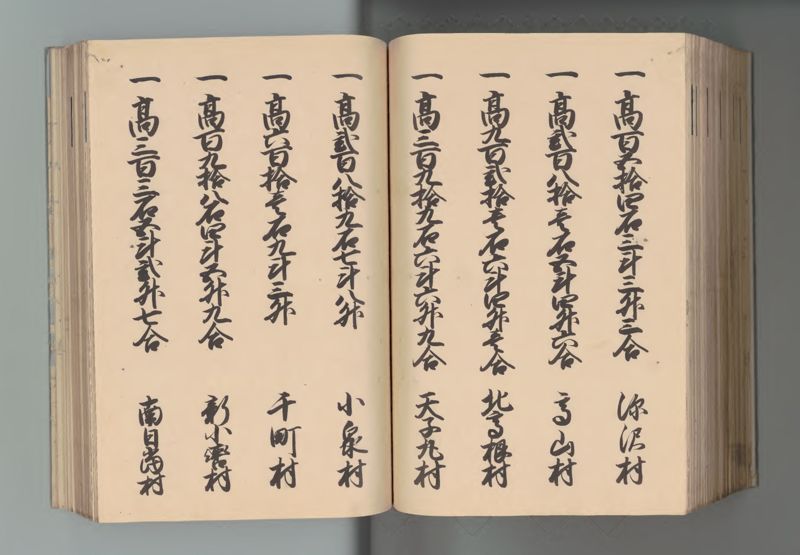 一高百五拾四石三斗三升三合 深沢村
一高弐百八拾壱石五斗四升六合 高山村
一高九百弐拾壱石六斗四升壱合 北高根村
一高三百九拾九石六斗六升九合 天子丸村
一高弐百八拾九石七斗八升 小泉村
一高六百拾壱石九斗三升 千町村
一高百九拾八石四斗五升九合 新小轡村
一高三百三石五斗弐升七合 南日当村